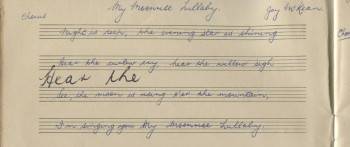 My Lullaby.
Chorus
Night is nigh, the evening star is shining
Hear the curlew cry hear the willow sigh
Hear the
See, the moon is rising o'er the mountain,
I'm singing you My Lullaby.